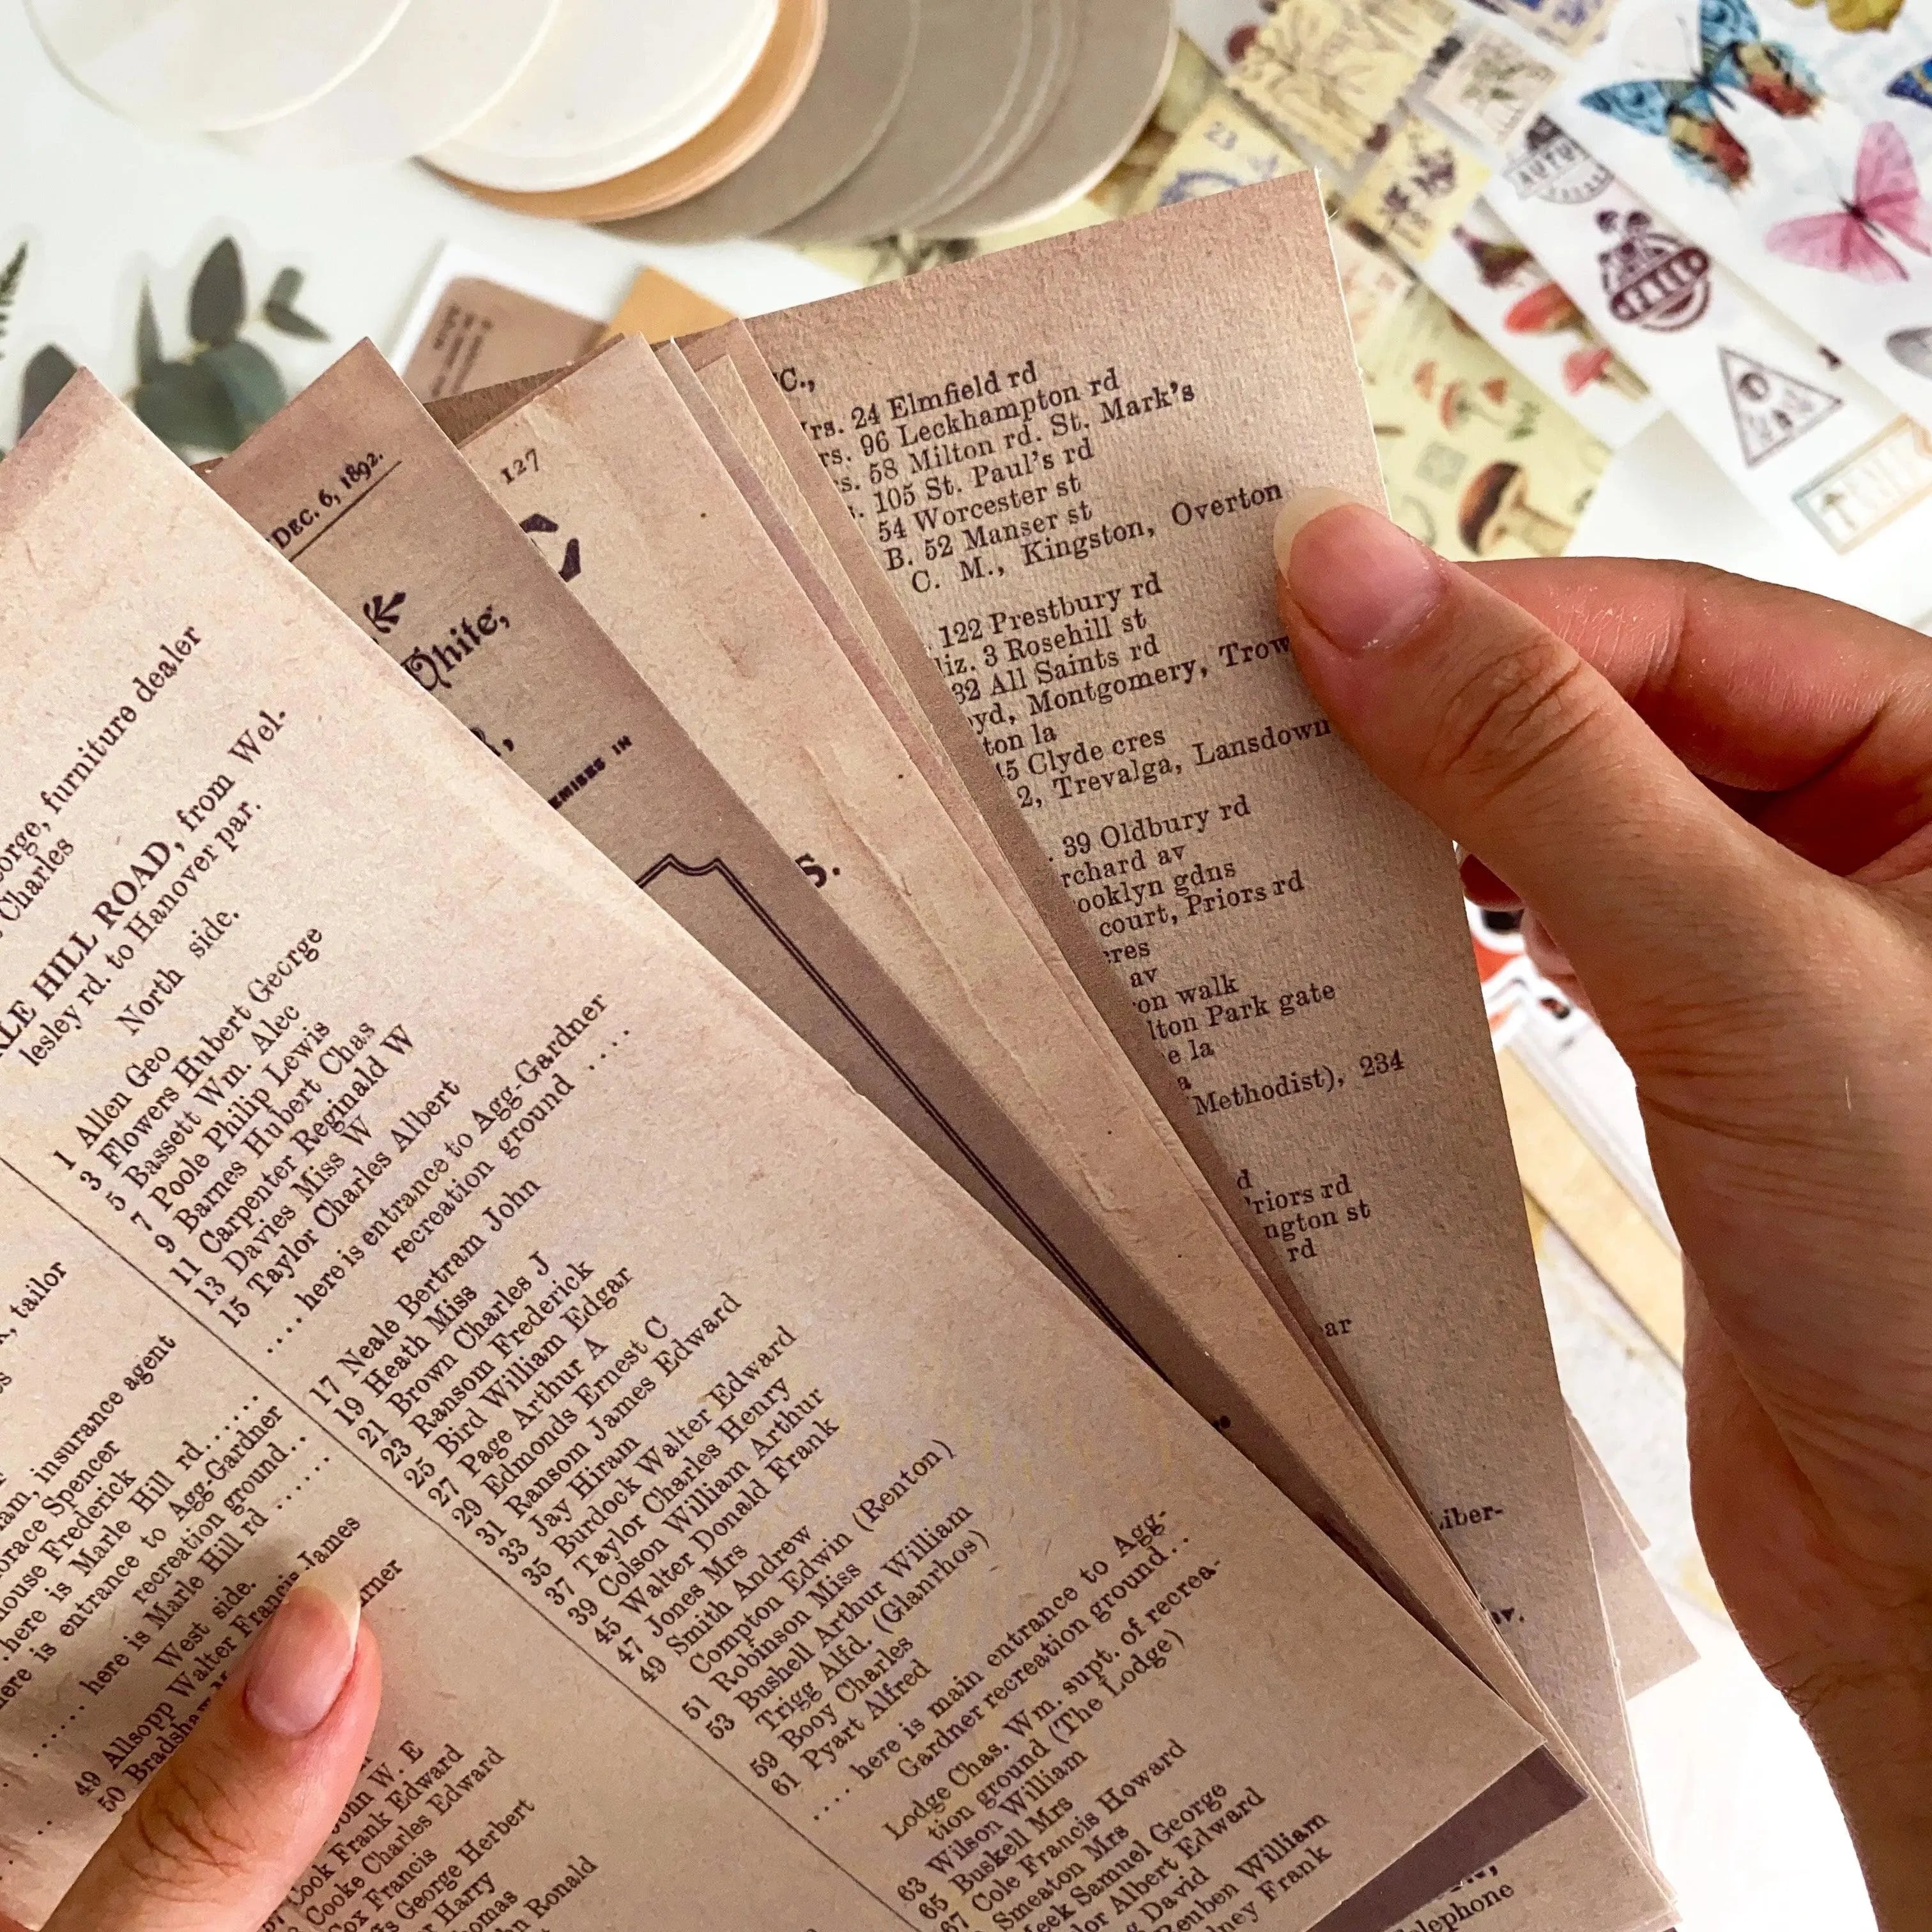 orge, furniture dealer
Charles
LE HILL ROAD, from Wel-
lesley rd. to Hanover par.
North side.
1 Allen Geo
3 Flowers Hubert George
5 Bassett Wm. Alec
7 Poole Philip Lewis
9 Barnes Hubert Chas
11 Carpenter Reginald W
13 Davies Miss W
15 Taylor Charles Albert
.... here is entrance to Agg-Gardner
recreation ground ....
17 Neale Bertram John
19 Heath Miss
21 Brown Charles J
23 Ransom Frederick
25 Bird William Edgar
27 Page Arthur A
29 Edmonds Ernest C
31 Ransom James Edward
33 Jay Hiram
35 Burdock Walter Edward
37 Taylor Charles Henry
39 Colson William Arthur
45 Walter Donald Frank
47 Jones Mrs
49 Smith Andrew
Compton Edwin (Renton)
51 Robinson Miss
53 Bushell Arthur William
Trigg Alfd. (Glanrhos)
59 Booy Charles
61 Pyart Alfred
.... here is main entrance to Agg-
Gardner recreation ground..
Lodge Chas. Wm. supt. of recrea-
tion ground (The Lodge)
63 Wilson William
65 Buskell Mrs
67 Cole Francis Howard
Smeaton Mrs
eek Samuel George
lor Albert Edward
David
Reuben William
dney Frank
, tailor
am, insurance agent
orace Spencer
ouse Frederick
.here is Marle Hill rd......
ere is entrance to Agg-Gardner
recreation ground..
...... here is Marle Hill rd ......
West side.
49 Allsopp Walter Francis James
50 Bradshaw
rner
John W. E
Cook Frank Edward
Cooke Charles Edward
Cox Francis
George Herbert
Harry
homas
n Ronald
DEC. 6, 1892.
White,
EMISES IN
127
S.
C.,
rs. 24 Elmfield rd
rs. 96 Leckhampton rd
s. 58 Milton rd. St. Mark's
. 105 St. Paul's rd
54 Worcester st
B. 52 Manser st
C. M., Kingston, Overton
122 Prestbury rd
liz. 3 Rosehill st
32 All Saints rd
yd, Montgomery, Trow
ton la
45 Clyde cres
2, Trevalga, Lansdown
. 39 Oldbury rd
rchard av
ooklyn gdns
court, Priors rd
cres
av
on walk
lton Park gate
e la
a
Methodist), 234
d
riors rd
ngton st
rd
ar
Liber-
av.
elephone
23